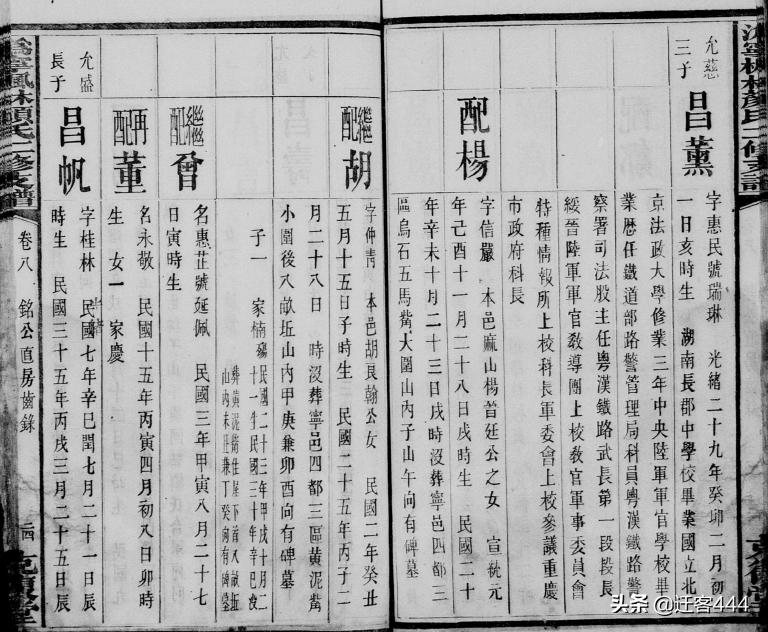 允慈
三子
昌薰
字惠民號瑞琳 光緒二十九年癸卯二月初
一日亥時生 湖南長郡中學校畢業國立北
京法政大學修業三年中央陸軍軍官學校畢
業歷任鐵道部路警管理局科員粵漢鐵路警
察署司法股主任粵漢鐵路武長第一段段長
綏晉陸軍軍官教導團上校教官軍事委員會
特種情報所上校科長軍委會上校參議重慶
市政府科長
配楊
字信嚴 本邑麻山楊晉廷公之女 宣統元
年己酉十一月二十八日戌時生 民國二十
年辛未十月二十三日戌時沒葬寧邑四都三
區烏石五馬觜大圍山內子山午向有碑墓
繼配胡
字仲靑 本邑胡長翰公女 民國二年癸丑
五月十五日子時生 民國二十五年丙子二
月二十八日 時沒葬寧邑四都三區黃泥觜
小圍後八畝坵山內甲庚兼卯酉向有碑墓
子一 家楠殤
民國二十三年甲戌十月二
十一生民國三十年辛巳沒
葬黃泥衝住屋下首八畝坵
山內未丑兼丁癸向有碑墓
繼配曾
名惠芷號延佩 民國三年甲寅八月二十七
日寅時生
再配董
名永敬 民國十五年丙寅四月初八日卯時
生 女一 家慶
允盛
長子
昌帆
字桂林 民國七年辛巳閏七月二十一日辰
時生 民國三十五年丙戌三月二十五日辰
溈寧楓林顏氏二修支譜
卷八 銘公直房齒錄
二四
头条 @迁客444